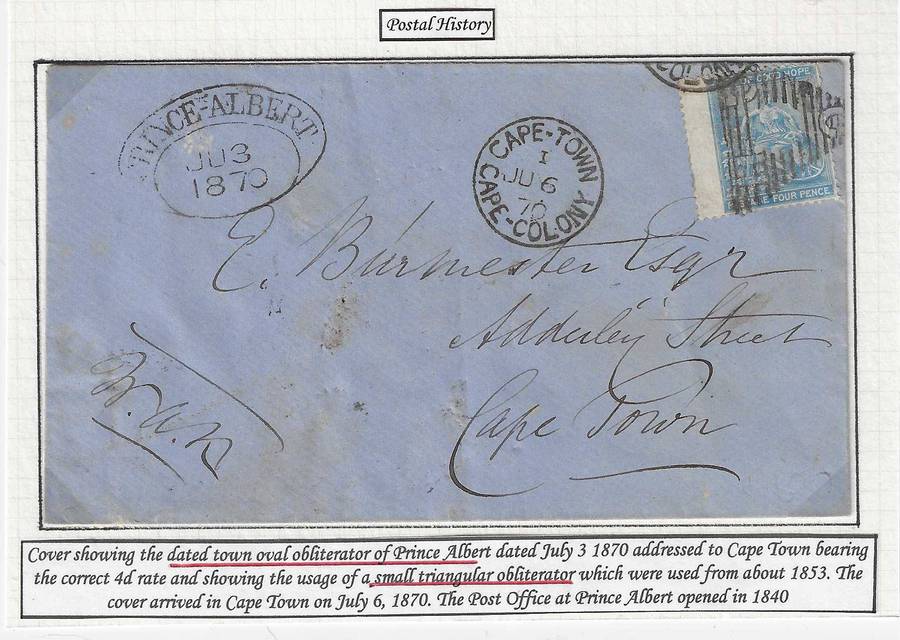 Postal History
PRINCE-ALBERT
JU 3
1870
CAPE-TOWN
I
JU 6
70
CAPE-COLONY
COLON
OF GOOD HOPE
FOUR PENCE
E. Burmester Esqr
Adderley Street
Cape Town
Cover showing the dated town oval obliterator of Prince Albert dated July 3 1870 addressed to Cape Town bearing
the correct 4d rate and showing the usage of a small triangular obliterator which were used from about 1853. The
cover arrived in Cape Town on July 6, 1870. The Post Office at Prince Albert opened in 1840